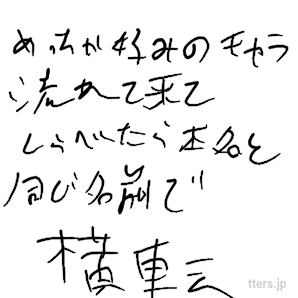 めっちゃ好みのキャラ
流れて来て
しらべたら本名と
同じ名前で
横転
tters.jp